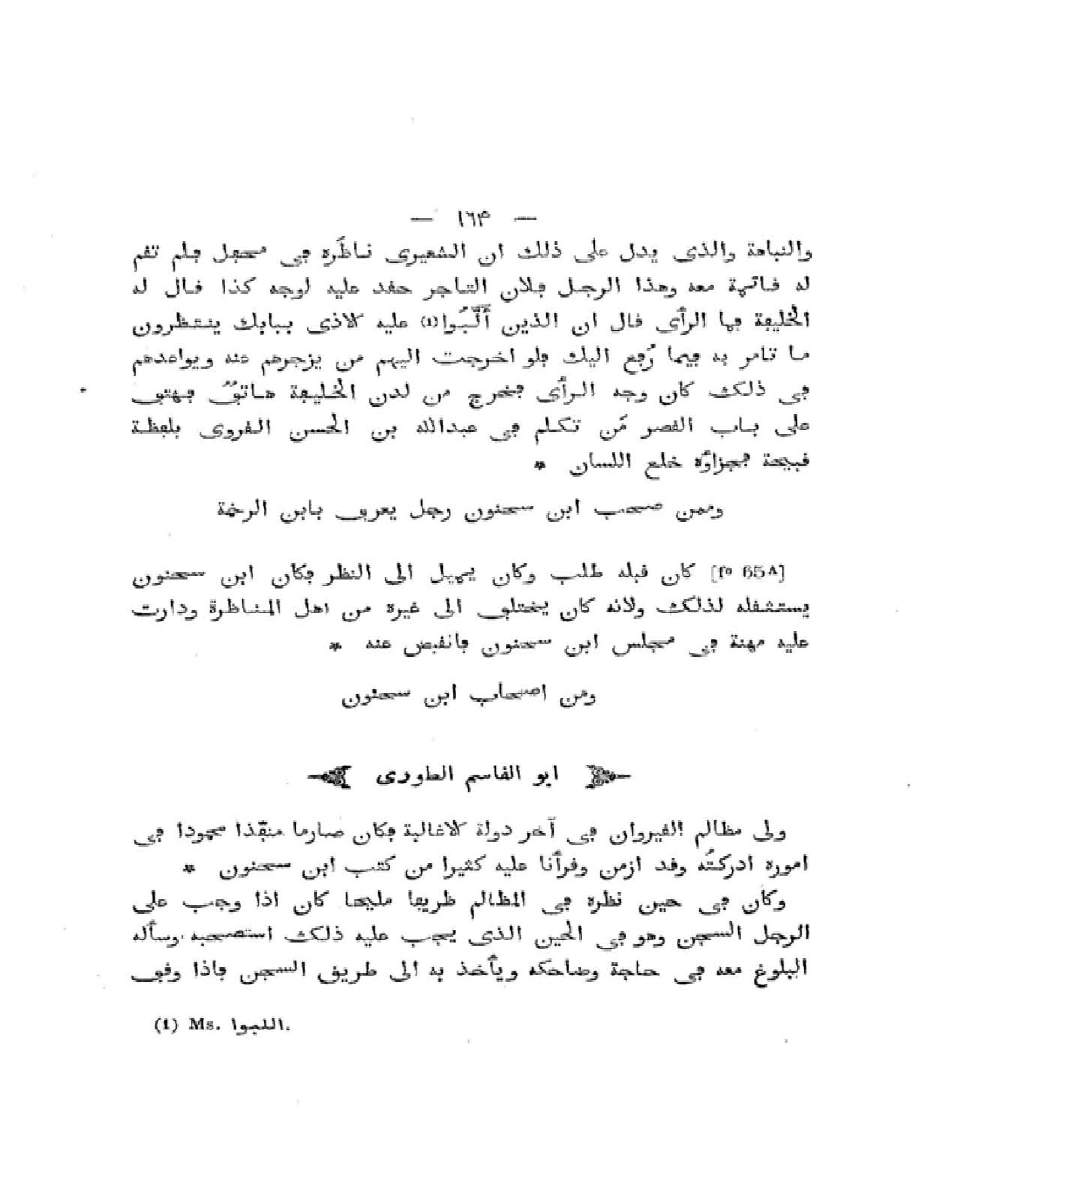 — ١٦۴ —
والنباهة والذى يدل على ذلك ان الشعيرى ناظَره فى محفل فلم تقم
له قائمة معه وهذا الرجل فلان التاجر حقد عليه لوجه كذا قال له
الخليفة فما الرأى قال ان الذين أَلَّبُوا(1) عليه الاذى ببابك ينتظرون
ما تامر به فيما رُفع اليك فلو اخرجت اليهم من يزجرهم عنه ويواعدهم
فى ذلك كان وجه الرأى فخرج من لدن الخليفة هاتفٌ فهتف
على باب القصر مَن تكلم فى عبدالله بن الحسن القروى بلفظة
قبيحة فجزاؤه خلع اللسان *
وممن صحب ابن سحنون رجل يعرف بابن الرخمة
[fo 65A] كان قبله طلب وكان يميل الى النظر فكان ابن سحنون
يستثقله لذلك ولانه كان يختلف الى غيره من اهل المناظرة ودارت
عليه مهنة فى مجلس ابن سحنون فانقبض عنه *
ومن اصحاب ابن سحنون
ابو القاسم الطورى
ولى مظالم القيروان فى آخر دولة الاغالبة فكان صارما منفّذا محمودا فى
اموره ادركتُه وقد ازمن وقرأنا عليه كثيرا من كتب ابن سحنون *
وكان فى حين نظره فى المظالم ظريفا مليحا كان اذا وجب على
الرجل السجن وهو فى الحين الذى يجب عليه ذلك استصحبه وسأله
البلوغ معه فى حاجة وضاحكه ويأخذ به الى طريق السجن فاذا وقف
(1) Ms. اللبوا.